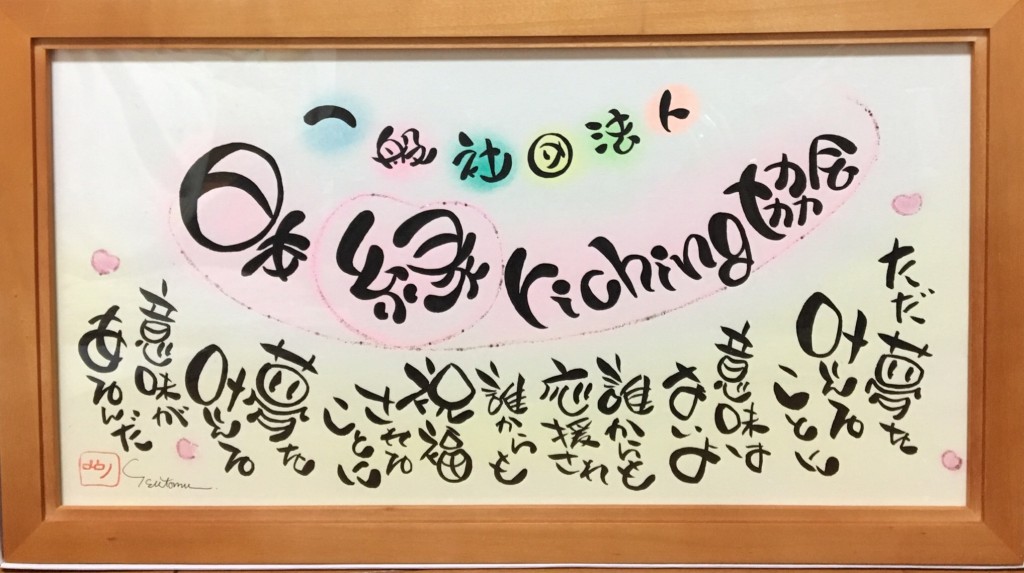 一般社団法人
日本縁riching協会
ただ夢を
叶える
ことに
意味は
ないよ
誰からも
応援され
誰からも
祝福
される
ことに
夢を
叶える
意味が
あるんだ